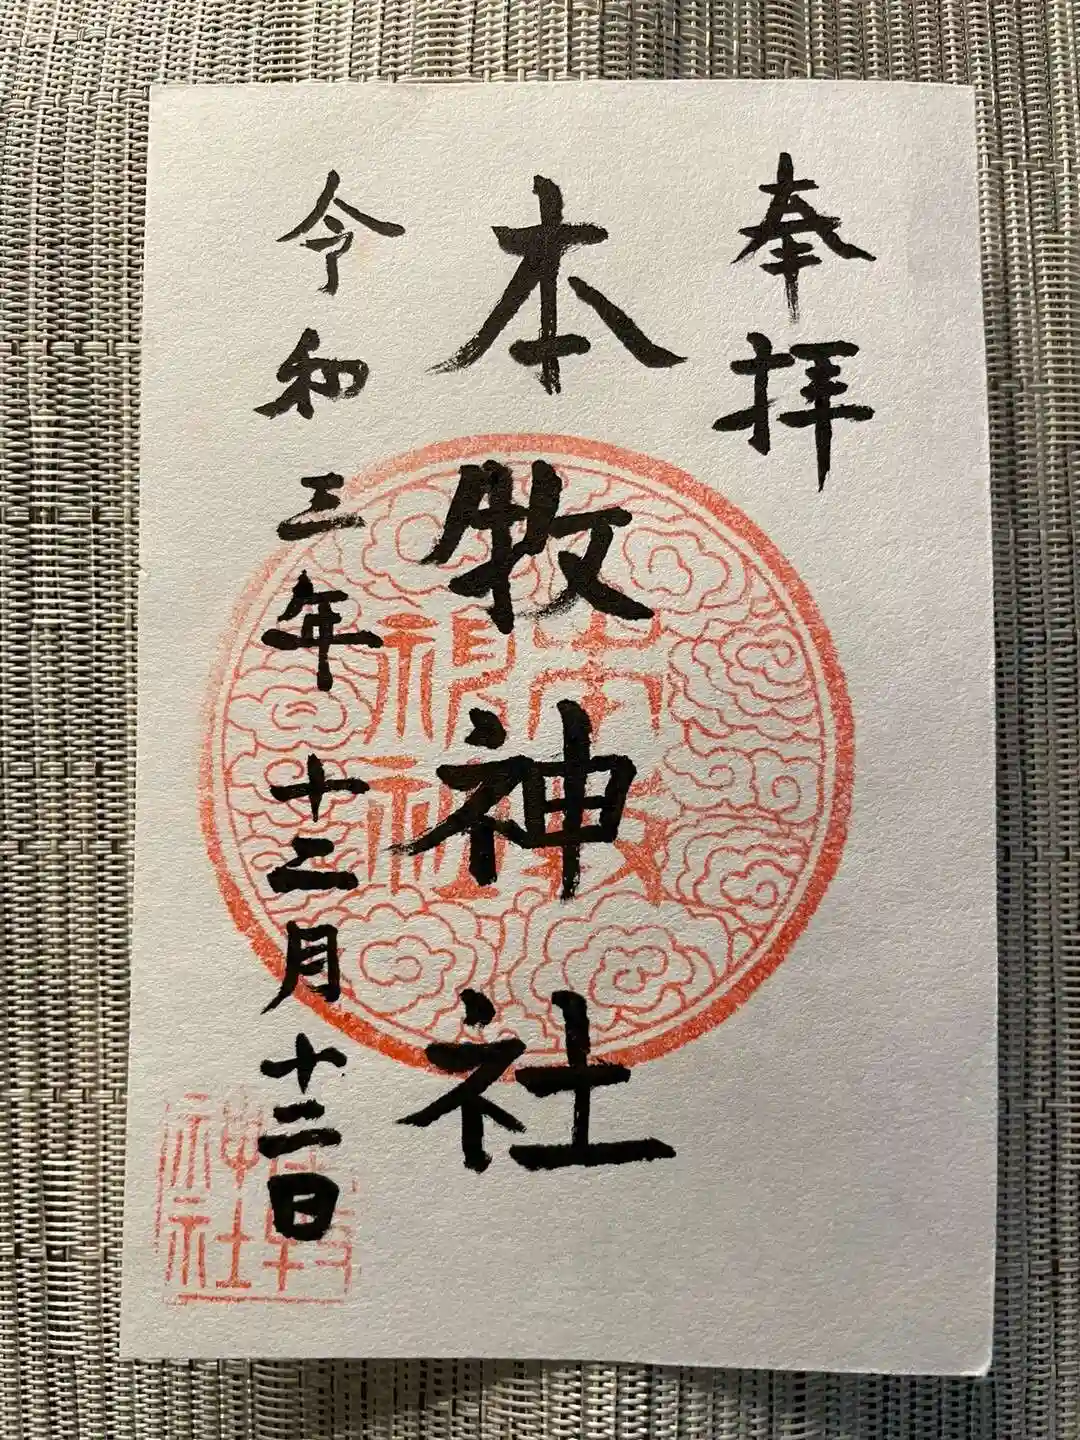 奉拝
本牧神社
令和三年十二月十二日
本牧神社